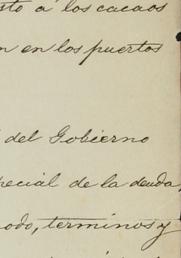 sto á los cacaos
n en los puertos
del Gobierno
pecial de la deuda,
odo, terminos y